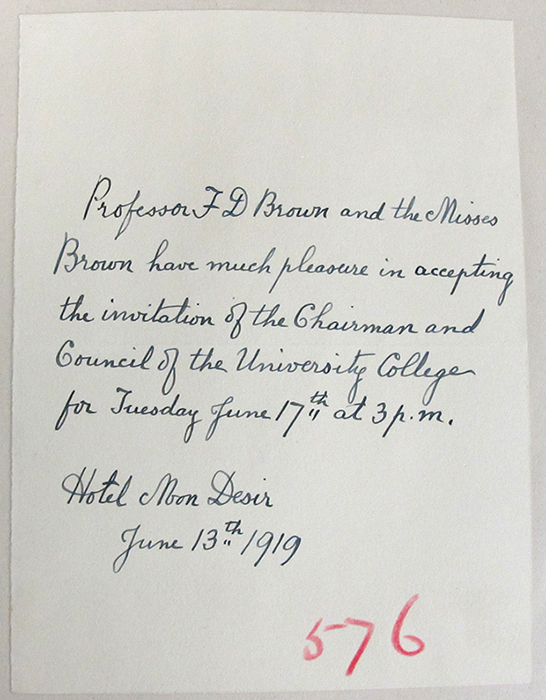 Professor F D Brown and the Misses
Brown have much pleasure in accepting
the invitation of the Chairman and
Council of the University College
for Tuesday June 17th at 3 p.m.
Hotel Mon Desir
June 13th 1919
576